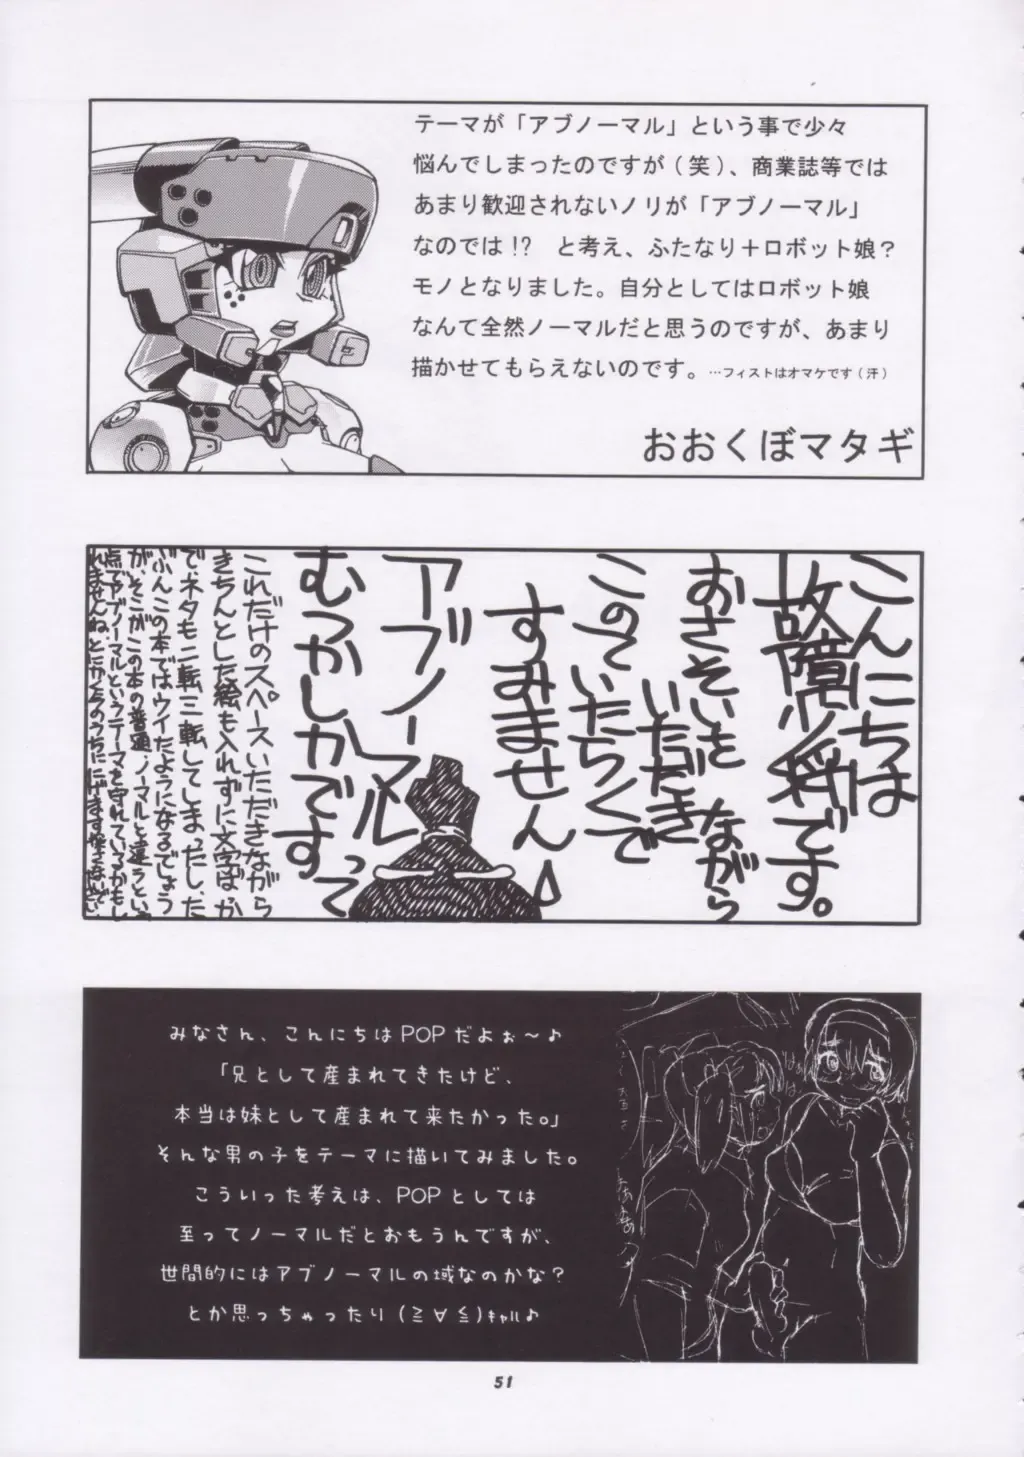 テーマが「アブノーマル」という事で少々
悩んでしまったのですが(笑)、商業誌等では
あまり歓迎されないノリが「アブノーマル」
なのでは!?　と考え、ふたなり+ロボット娘?
モノとなりました。自分としてはロボット娘
なんて全然ノーマルだと思うのですが、あまり
描かせてもらえないのです。…フィストはオマケです(汗)
おおくぼマタギ
こんにちは
故障少将です。
おさそいをいただきながら
このていたらくで
すみません
アブノーマルって
むつかしかですす
これだけのスペースいただきながら
きちんとした絵も入れずに文字ばか
で、ネタも二転三転してしまったし、た
ぶん、この本ではウイたようになるでしょう
が、そこがこの本の普通、ノーマルと違うという
点でアブノーマルというテーマを守れているかもし
れませんね、とにかく今のうちににげます
みなさん、こんにちはPOPだよぉ〜♪
「兄として産まれてきたけど、
本当は妹として産まれて来たかった。」
そんな男の子をテーマに描いてみました。
こういった考えは、POPとしては
至ってノーマルだとおもうんですが、
世間的にはアブノーマルの域なのかな?
とか思っちゃったり(≧∀≦)ｷｬﾙ♪
51